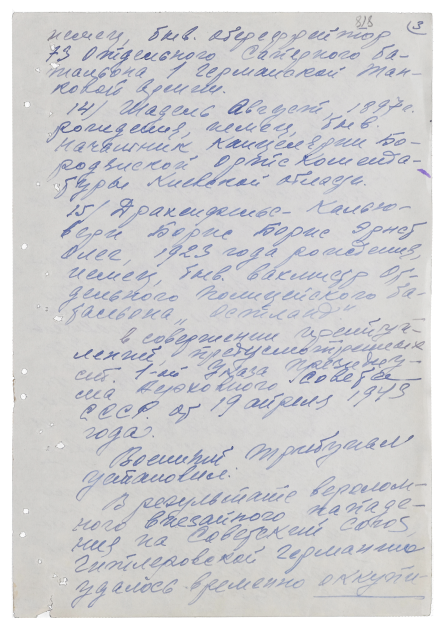 818 3
немец, быв. обер-ефрейтор
73 Отдельного Саперного ба-
тальона 1 Германской Тан-
ковой Армии.
14/ Шадель Август, 1897 г.
рождения, немец, быв.
Начальник Канцелярии Бо-
родянской Ортскомента-
туры Киевской области.
15/ Дракенфельс-Калью-
вери Борис Борис Эрнст
Олег, 1923 года рождения,
немец, быв. вахмистр От-
дельного полицейского ба-
тальона „Остланд"
в совершении преступ-
лений, предусмотренных
ст. 1-ой Указа Президиу-
ма Верховного Совета
СССР от 19 апреля 1943
года.
Военный Трибунал
установил:
В результате веролом-
ного внезапного нападе-
ния на Советский Союз,
Гитлеровской Германии
удалось временно оккупи-